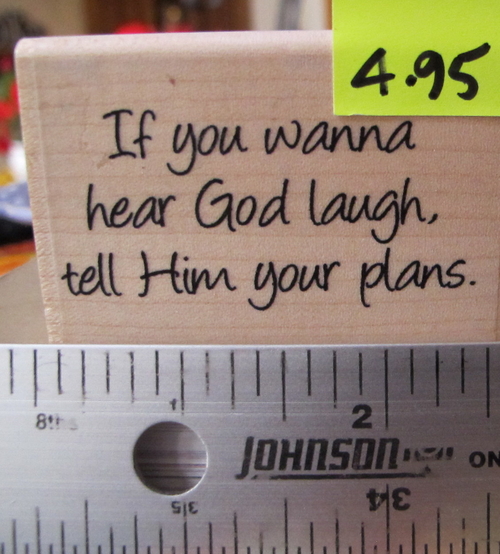 4.95
If you wanna
hear God laugh,
tell Him your plans.
8ths
1
2
JOHNSON
ON
35
34